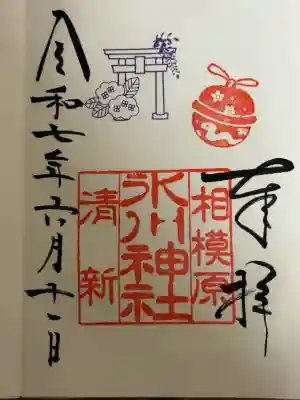 奉拝
相模原
氷川神社
清新
令和七年六月十一日